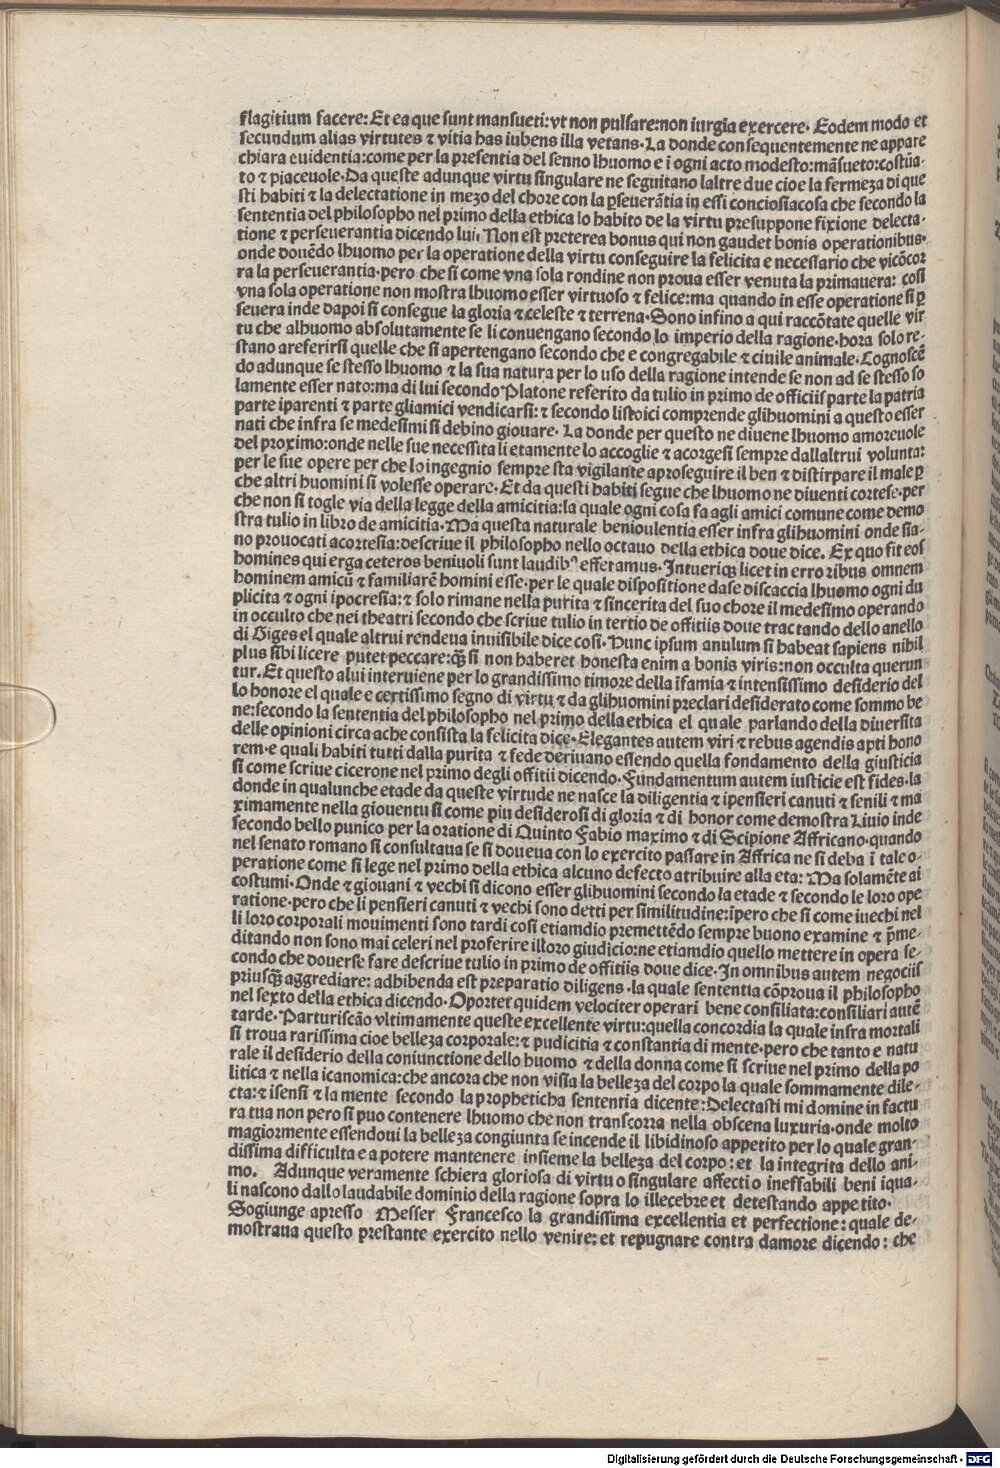 flagitium facere: Et ea que sunt mansueti: vt non pulsare: non iurgia exercere. Eodem modo et
secundum alias virtutes ⁊ vitia has iubens illa vetans. La donde consequentemente ne appare
chiara euidentia: come per la presentia del senno lhuomo e ĩ ogni acto modesto: mãsueto: costũa⸗
to ⁊ piaceuole. Da queste adunque virtu singulare ne seguitano laltre due cioe la fermeza di que
sti habiti ⁊ la delectatione in mezo del chore con la ꝑseuerãtia in essi conciosiacosa che secondo la
sententia del philosopho nel primo della ethica lo habito de la virtu presuppone fixione delecta⸗
tione ⁊ perseuerantia dicendo lui. Non est preterea bonus qui non gaudet bonis operationibus.
onde douẽdo lhuomo per la operatione della virtu conseguire la felicita e necessario che vicõcor
ra la perseuerantia. pero che si come vna sola rondine non proua esser venuta la primauera: cosi
vna sola operatione non mostra lhuomo esser virtuoso ⁊ felice: ma quando in esse operatione si ꝑ
seuera inde dapoi si consegue la gloria ⁊ celeste ⁊ terrena. Sono infino a qui raccõtate quelle vir
tu che alhuomo absolutamente se li conuengano secondo lo imperio della ragione. hora solo re⸗
stano areferirsi quelle che si apertengano secondo che e congregabile ⁊ ciuile animale. Cognoscẽ
do adunque se stesso lhuomo ⁊ la sua natura per lo uso della ragione intende se non ad se stesso so
lamente esser nato: ma di lui secondo Platone referito da tulio in primo de officiis parte la patria
parte iparenti ⁊ parte gliamici vendicarsi: ⁊ secondo listoici comprende glihuomini a questo esser
nati che infra se medesimi si debino giouare. La donde per questo ne diuene lhuomo amoreuole
del proximo: onde nelle sue necessita li etamente lo accoglie ⁊ acorgesi sempre dallaltrui volunta:
per le sue opere per che lo ingegnio sempre sta vigilante aproseguire il ben ⁊ distirpare il male ꝑ
che altri huomini si volesse operare. Et da questi habiti segue che lhuomo ne diuenti cortese. per
che non si togle via della legge della amicitia: la quale ogni cosa fa agli amici comune come demo
stra tulio in libro de amicitia. Ma questa naturale beniuolentia esser infra glihuomini onde sia⸗
no prouocati acortesia: descriue il philosopho nello octauo della ethica doue dice. Ex quo fit eos
homines qui erga ceteros beniuoli sunt laudibꝰ efferamus. Intuerique licet in erro ribus omnem
hominem amicũ ⁊ familiarẽ homini esse. per le quale dispositione dase discaccia lhuomo ogni du
plicita ⁊ ogni ipocresia: ⁊ solo rimane nella purita ⁊ sincerita del suo chore il medesimo operando
in occulto che nei theatri secondo che scriue tulio in tertio de offitiis doue trac tando dello anello
di Giges el quale altrui rendeua inuisibile dice cosi. Hunc ipsum anulum si habeat sapiens nihil
plus sibi licere putet peccare: q̃ȝ si non haberet honesta enim a bonis viris: non occulta querun
tur. Et questo alui interuiene per lo grandissimo timore della ĩfamia ⁊ intensissimo desiderio del
lo honore el quale e certissimo segno di virtu ⁊ da glihuomini preclari desiderato come sommo be
ne: secondo la sententia del philosopho nel primo della ethica el quale parlando della diuersita
delle opinioni circa ache consista la felicita dice. Elegantes autem viri ⁊ rebus agendis apti hono
rem. e quali habiti tutti dalla purita ⁊ fede deriuano essendo quella fondamento della giusticia
si come scriue cicerone nel primo degli offitii dicendo. Fundamentum autem iusticie est fides. la
donde in qualunche etade da queste virtude ne nasce la diligentia ⁊ ipensieri canuti ⁊ senili ⁊ ma
ximamente nella giouentu si come piu desiderosi di gloria ⁊ di honor come demostra Liuio inde
secondo bello punico per la oratione di Quinto Fabio maximo ⁊ di Scipione Affricano. quando
nel senato romano si consultaua se si doueua con lo exercito passare in Affrica ne si deba ĩ tale o⸗
peratione come si lege nel primo della ethica alcuno defecto atribuire alla eta: Ma solamẽte ai
costumi. Onde ⁊ giouani ⁊ vechi si dicono esser glihuomini secondo la etade ⁊ secondo le loro ope
ratione. pero che li pensieri canuti ⁊ vechi sono detti per similitudine: ĩpero che si come iuechi nel
li loro corporali mouimenti sono tardi cosi etiamdio premettẽdo sempre buono examine ⁊ p̃me⸗
ditando non sono mai celeri nel proferire illoro giudicio: ne etiamdio quello mettere in opera se⸗
condo che douerse fare descriue tulio in primo de offitiis doue dice. In omnibus autem negociis
priusq̃ȝ aggrediare: adhibenda est preparatio diligens. la quale sententia cõproua il philosopho
nel sexto della ethica dicendo. Oportet quidem velociter operari bene consiliata: consiliari autẽ
tarde. Parturiscão vltimamente queste excellente virtu: quella concordia la quale infra mortali
si troua rarissima cioe belleza corporale: ⁊ pudicitia ⁊ constantia di mente. pero che tanto e natu
rale il desiderio della coniunctione dello huomo ⁊ della donna come si scriue nel primo della po
litica ⁊ nella icanomica: che ancora che non visia la belleza del corpo la quale sommamente dile⸗
cta: ⁊ isensi ⁊ la mente secondo la propheticha sententia dicente: Delectasti mi domine in factu
ra tua non pero si puo contenere lhuomo che non transcorra nella obscena luxuria. onde molto
magiormente essendoui la belleza congiunta se incende il libidinoso appetito per lo quale gran⸗
dissima difficulta e a potere mantenere insieme la belleza del corpo: et la integrita dello ani⸗
mo. Adunque veramente schiera gloriosa di virtu o singulare affecti o ineffabili beni iqua⸗
li nascono dallo laudabile dominio della ragione sopra lo illecebre et detestando appetito.
Sogiunge apresso Messer Francesco la grandissima excellentia et perfectione: quale de⸗
mostraua questo prestante exercito nello venire: et repugnare contra damore dicendo: che
Digitalisierung gefördert durch die Deutsche Forschungsgemeinschaft - DFG